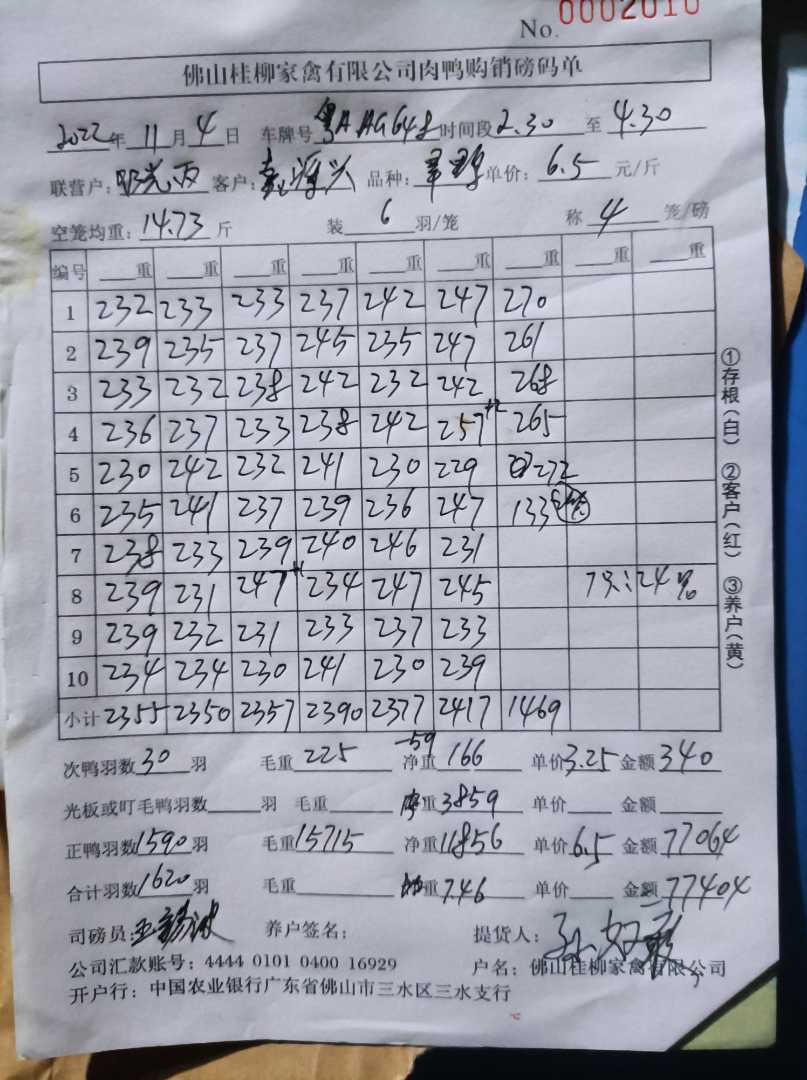 No. 0002010
佛山桂柳家禽有限公司肉鸭购销磅码单
2022年 11月 4日 车牌号 粤A.AG648 时间段 2.30 至 4.30
联营户: 客户: 品种: 单价: 6.5 元/斤
空笼均重: 14.73 斤 装 6 羽/笼 称 4 笼/磅
编号 重 重 重 重 重 重 重 重 重
1 232 233 233 237 242 247 270
2 239 235 237 245 235 247 261
3 233 232 238 242 232 242 268
4 236 237 233 238 242 257+2 265
5 230 242 232 241 230 229 272
6 235 241 237 239 236 247 133
7 238 233 239 240 246 231
8 239 231 247+1 234 247 245 7只:24%
9 239 232 231 233 237 233
10 234 234 230 241 230 239
小计 2355 2350 2357 2390 2377 2417 1469
次鸭羽数 30 羽 毛重 225 -59 净重 166 单价 3.25 金额 340
光板或叮毛鸭羽数 羽 毛重 重 3859 单价 金额
正鸭羽数 1590 羽 毛重 15715 净重 11856 单价 6.5 金额 77064
合计羽数 1620 羽 毛重 重 7.46 单价 金额 77404
司磅员: 养户签名: 提货人:
公司汇款账号: 4444 0101 0400 16929 户名: 佛山桂柳家禽有限公司
开户行: 中国农业银行广东省佛山市三水区三水支行
①存根(白) ②客户(红) ③养户(黄)